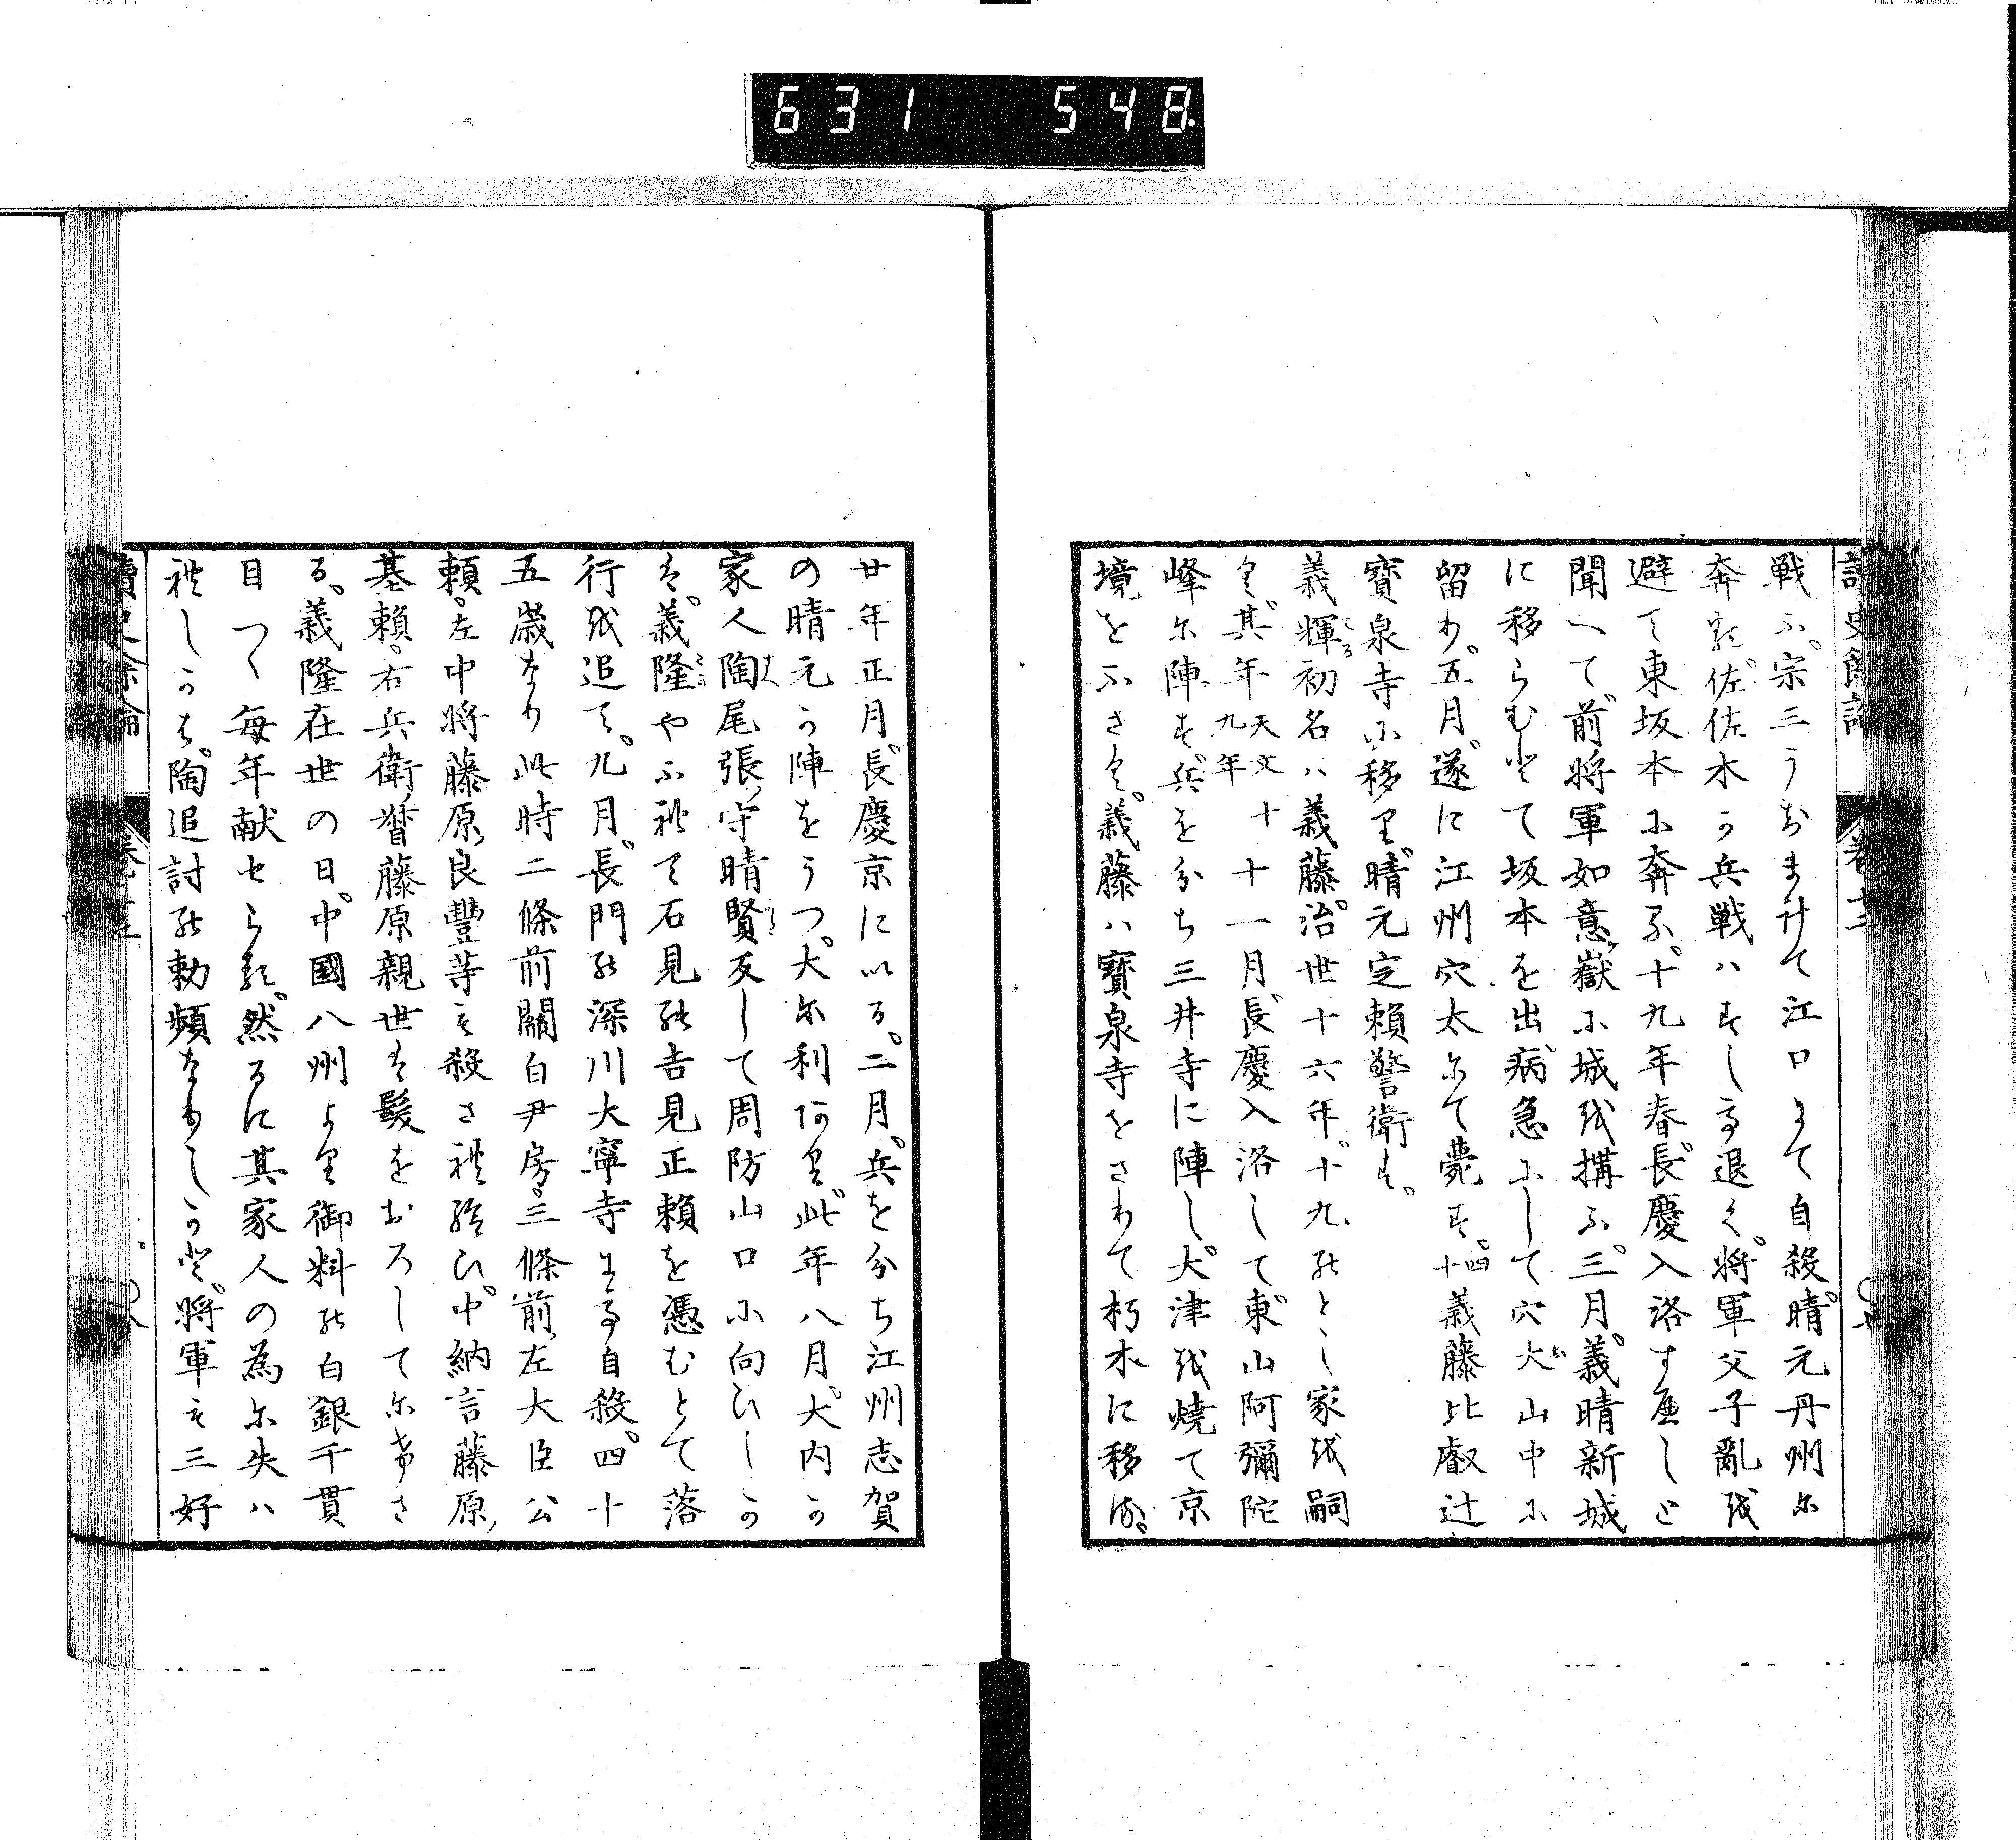 631 548
讀史餘論 卷十二
戦ふ。宗三うちまけて江口にて自殺。晴元丹州に
奔る。佐佐木か兵戦ハすして退く。将軍父子亂を
避て東坂本に奔る。十九年春。長慶入洛す應しと
聞へて前将軍如意嶽に城を搆ふ。三月。義晴新城
に移らむとて坂本を出。病急にして穴太山中に
留り。五月。遂に江州穴太にて薨す。四十義藤比叡辻
寶泉寺に移り。晴元定頼警衛す。
義輝初名ハ義藤。治世十六年。十九にして家を嗣
く。其年天文十九年十一月。長慶入洛して東山阿彌陀
峰に陣す。兵を分ち三井寺に陣し。大津を焼て京
境をふさく。義藤ハ寶泉寺をさりて朽木に移る。
廿年正月。長慶京にいる。二月。兵を分ち江州志賀
の晴元か陣をうつ。大に利あり。此年八月。大内か
家人陶尾張守晴賢反して周防山口に向ひしか
は。義隆やふれて石見の吉見正頼を憑むとて落
行を追て。九月。長門の深川大寧寺にて自殺。四十
五歳なり此時二條前關白尹房。三條前左大臣公
頼。左中将藤原良豐等も殺され給ひ。中納言藤原
基頼。右兵衛督藤原親世は髪をおろしてにけさ
る。義隆在世の日。中國八州より御料の白銀千貫
目つゝ毎年献せらる。然るに其家人の為に失ハ
れしかは。陶追討の勅頻なりしかと。将軍も三好
讀史餘論 卷十二